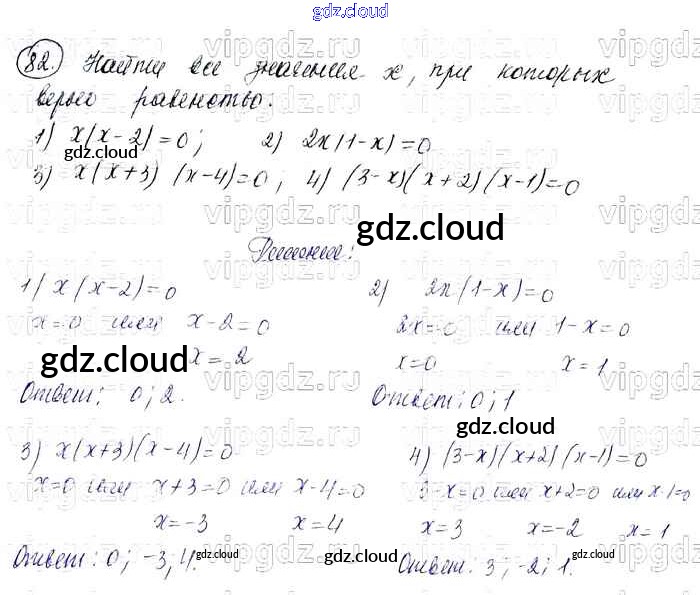 gdz.cloud
82. Найти все значения x, при которых
верно равенство:
1) x(x-2)=0; 2) 2x(1-x)=0
gdz.cloud
3) x(x+3)(x-4)=0; 4) (3-x)(x+2)(x-1)=0
gdz.cloud
Решение:
1) x(x-2)=0
x=0 или x-2=0
x=2
gdz.cloud
Ответ: 0; 2.
2) 2x(1-x)=0
2x=0 или 1-x=0
x=0 x=1
Ответ: 0; 1
gdz.cloud
3) x(x+3)(x-4)=0
x=0 или x+3=0 или x-4=0
x=-3 x=4
Ответ: 0; -3; 4.
gdz.cloud
4) (3-x)(x+2)(x-1)=0
3-x=0 или x+2=0 или x-1=0
x=3 x=-2 x=1
gdz.cloud
Ответ: 3; -2; 1.
gdz.cloud
vipgdz.ru